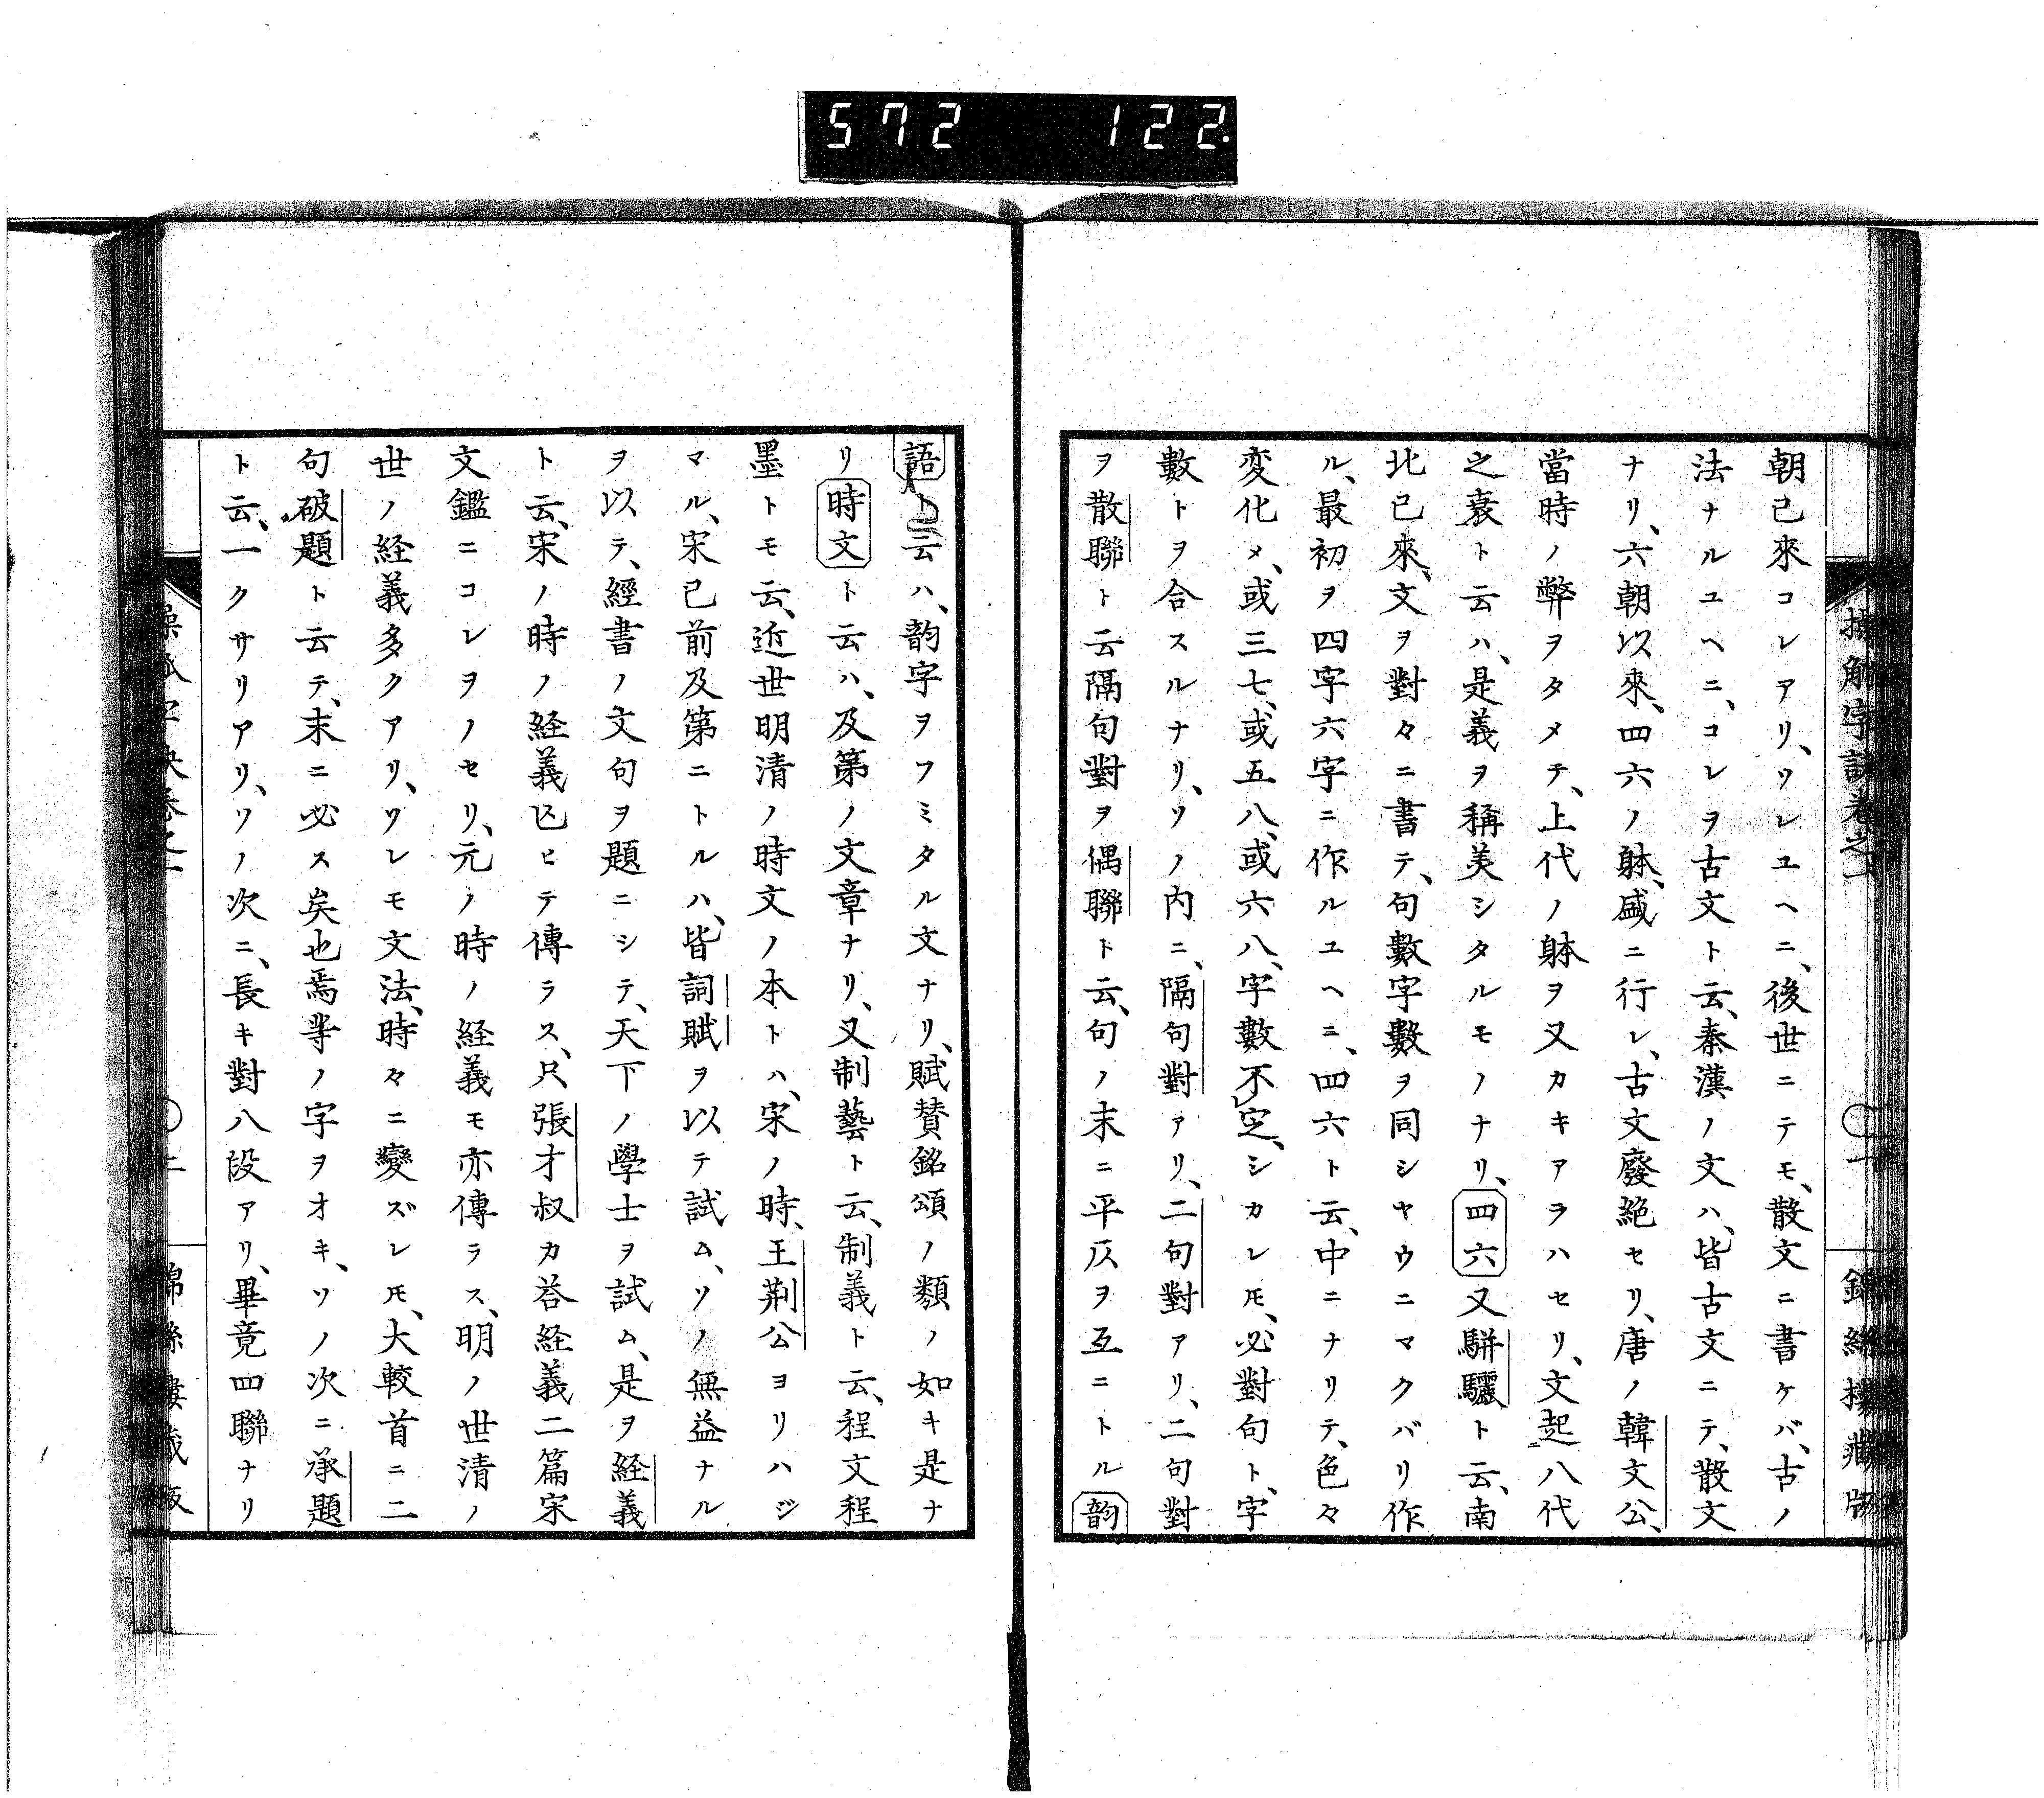 572 122.
朝已來コレアリ、ソレユヘニ、後世ニテモ、散文ニ書ケバ、古ノ
法ナルユヘニ、コレヲ古文ト云、秦漢ノ文ハ、皆古文ニテ、散文
ナリ、六朝以來、四六ノ躰、盛ニ行レ、古文廢絕セリ、唐ノ韓文公、
當時ノ弊ヲタメテ、上代ノ躰ヲ又カキアラハセリ、文起八代
之衰ト云ハ、是義ヲ稱美シタルモノナリ、四六又駢驪ト云、南
北已來、文ヲ對々ニ書テ、句數字數ヲ同シヤウニマクバリ作
ル、最初ヲ四字六字ニ作ルユヘニ、四六ト云、中ニナリテ、色々
変化メ、或三七、或五八、或六八、字數不定、シカレ𪜈、必對句ト、字
數トヲ合スルナリ、ソノ内ニ、隔句對アリ、二句對アリ、二句對
ヲ散聯ト云隔句對ヲ偶聯ト云、句ノ末ニ平仄ヲ互ニトル韵
語ト云ハ、韵字ヲフミタル文ナリ、賦賛銘頌ノ類ノ如キ是ナ
リ時文ト云ハ、及第ノ文章ナリ、又制藝ト云、制義ト云、程文程
墨トモ云、近世明清ノ時文ノ本トハ、宋ノ時、王荆公ヨリハジ
マル、宋已前及第ニトルハ、皆詞賦ヲ以テ試ム、ソノ無益ナル
ヲ以テ、經書ノ文句ヲ題ニシテ、天下ノ學士ヲ試ム、是ヲ経義
ト云、宋ノ時ノ経義亾ヒテ傳ラス、只張才叔カ荅経義二篇宋
文鑑ニコレヲノセリ、元ノ時ノ経義モ亦傳ラス、明ノ世清ノ
世ノ経義多クアリ、ソレモ文法、時々ニ變ズレ𪜈、大較首ニ二
句破題ト云テ、末ニ必ス矣也焉等ノ字ヲオキ、ソノ次ニ承題
ト云、一クサリアリ、ソノ次ニ、長キ對八段アリ、畢竟四聯ナリ